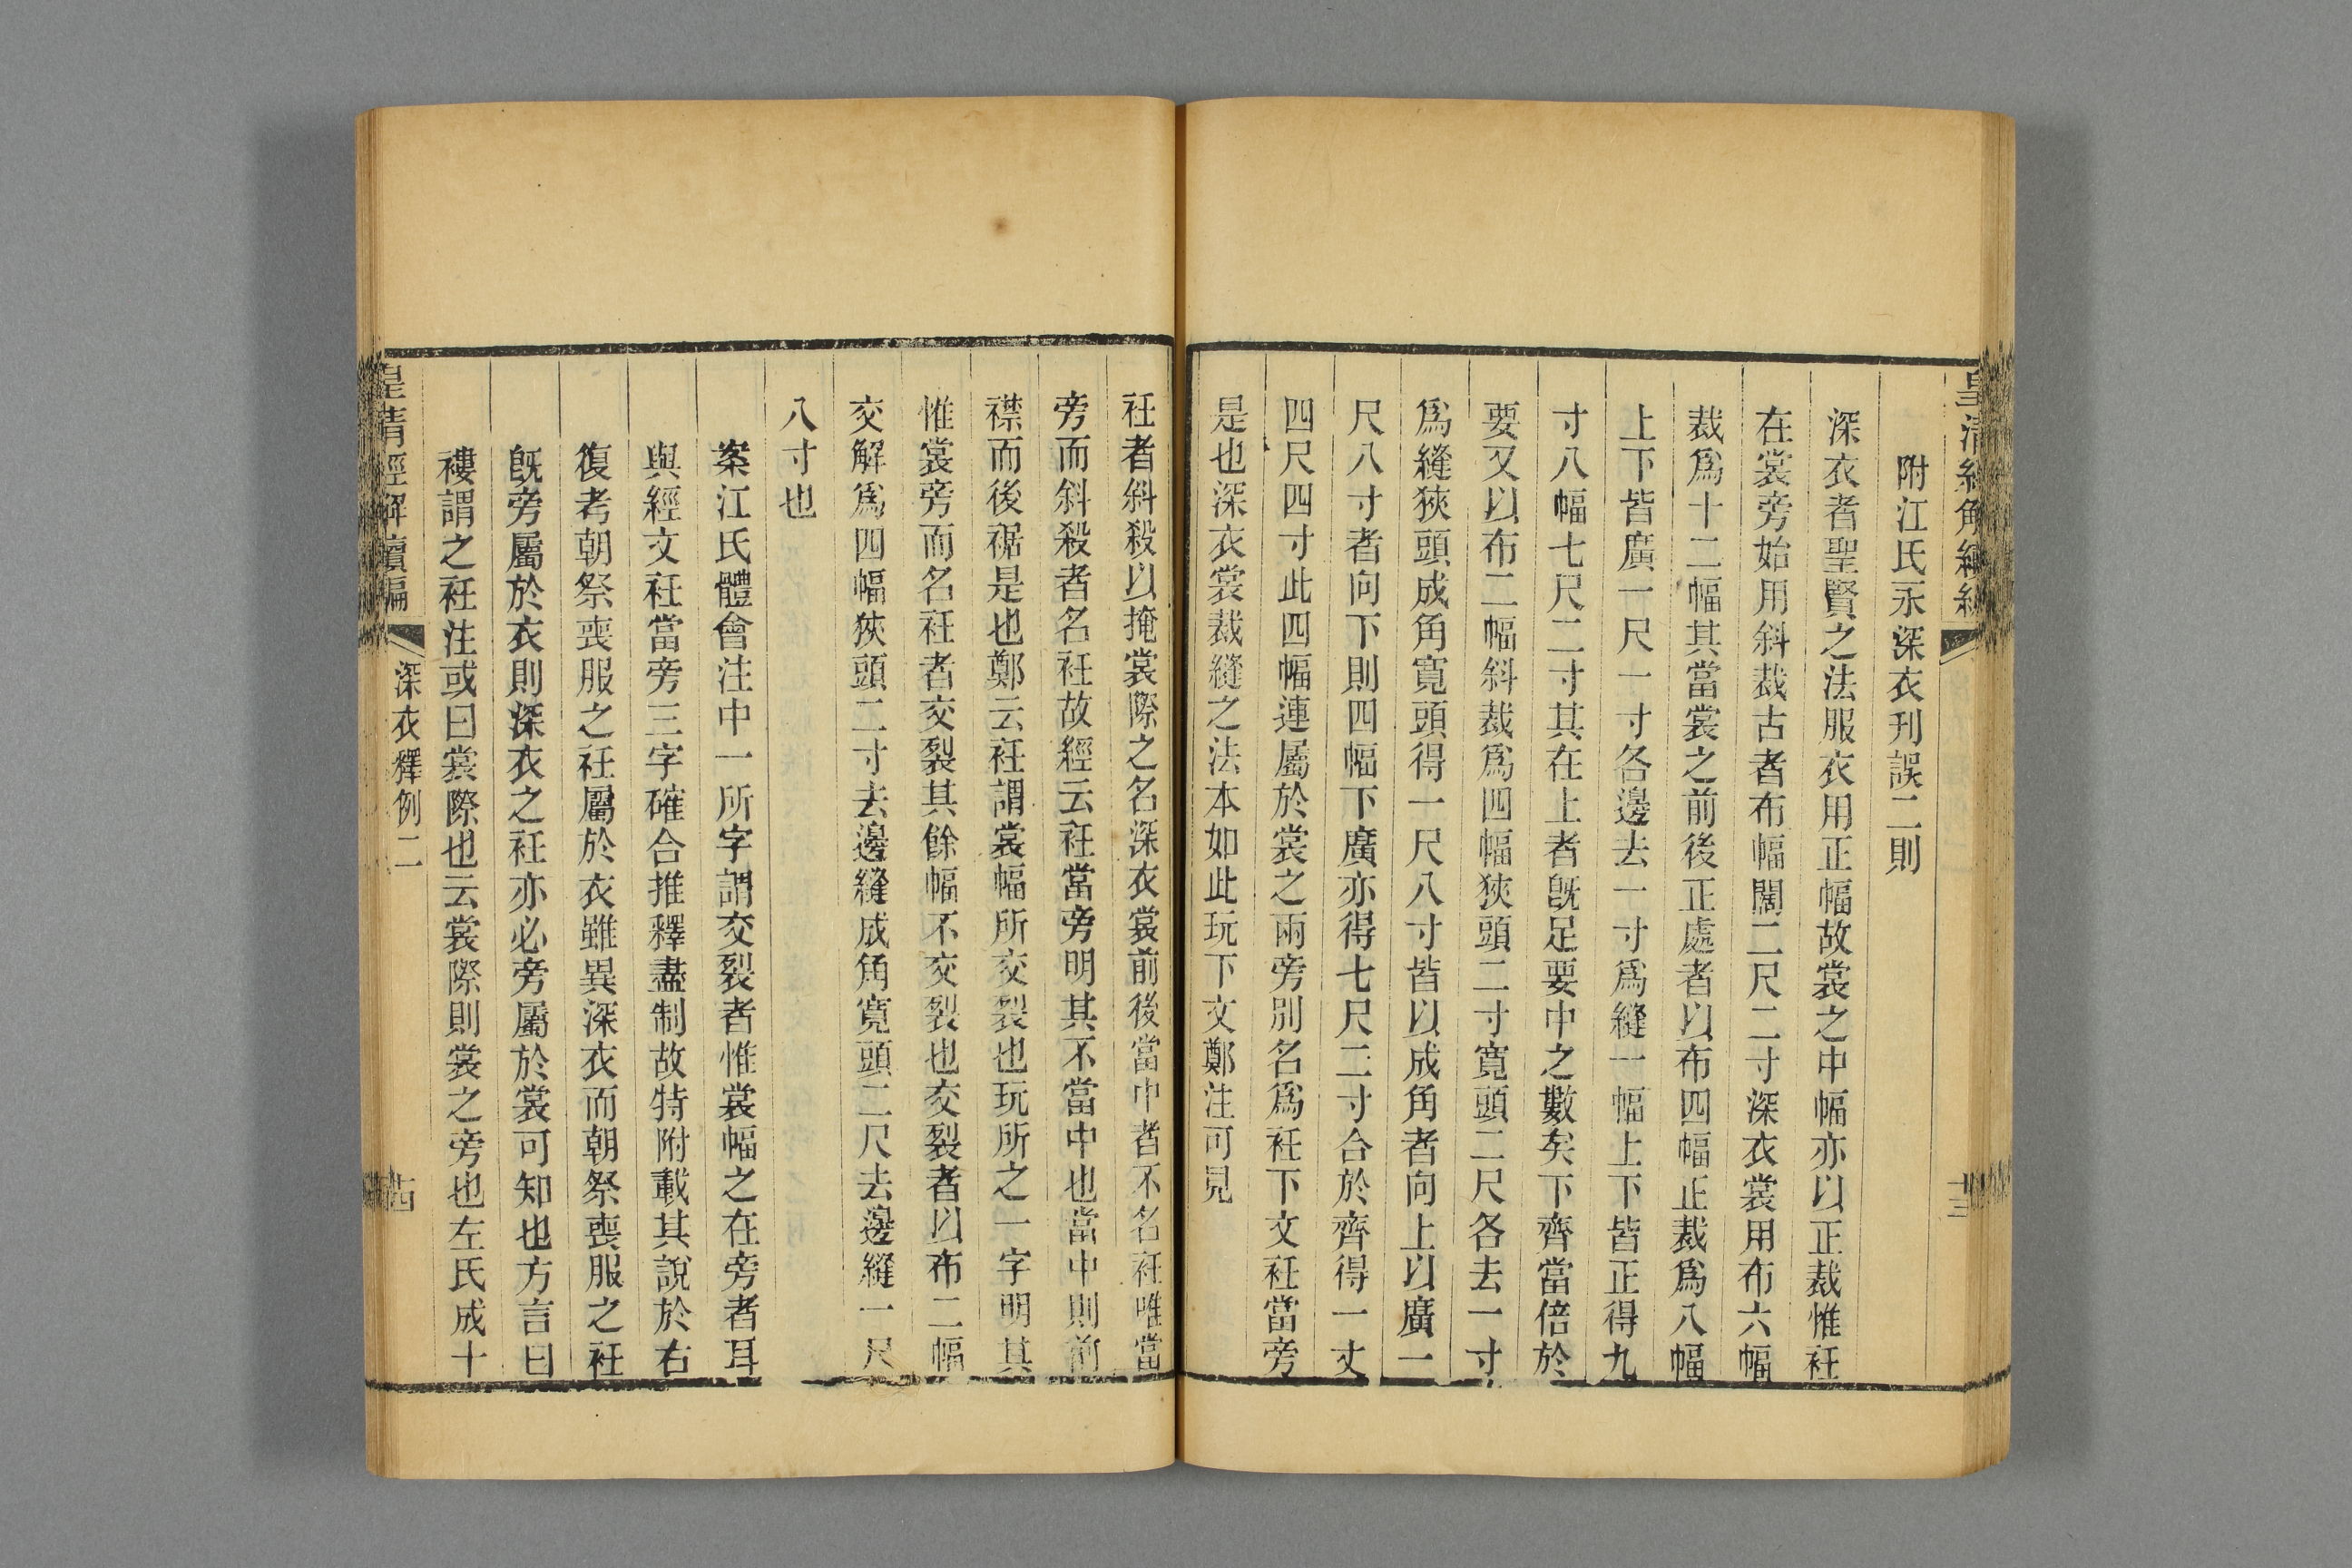 皇清經解續編
十三
附江氏永深衣刊誤二則
深衣者聖賢之法服衣用正幅故裳之中幅亦以正裁惟衽
在裳旁始用斜裁古者布幅闊二尺二寸深衣裳用布六幅
裁爲十二幅其當裳之前後正處者以布四幅正裁爲八幅
上下皆廣一尺一寸各邊去一寸爲縫一幅上下皆正得九
寸八幅七尺二寸其在上者旣足要中之數矣下齊當倍於
要又以布二幅斜裁爲四幅狹頭二寸寬頭二尺各去一寸
爲縫狹頭成角寬頭得一尺八寸皆以成角者向上以廣一
尺八寸者向下則四幅下廣亦得七尺二寸合於齊得一丈
四尺四寸此四幅連屬於裳之兩旁別名爲衽下文衽當旁
是也深衣裳裁縫之法本如此玩下文鄭注可見
衽者斜殺以掩裳際之名深衣裳前後當中者不名衽唯當
旁而斜殺者名衽故經云衽當旁明其不當中也當中則前
襟而後裾是也鄭云衽謂裳幅所交裂也玩所之一字明其
惟裳旁而名衽者交裂其餘幅不交裂也交裂者以布二幅
交解爲四幅狹頭二寸去邊縫成角寬頭二尺去邊縫一尺
八寸也
案江氏體會注中一所字謂交裂者惟裳幅之在旁者耳
與經文衽當旁三字確合推釋盡制故特附載其說於右
復考朝祭喪服之衽屬於衣雖異深衣而朝祭喪服之衽
旣旁屬於衣則深衣之衽亦必旁屬於裳可知也方言曰
褸謂之衽注或曰裳際也云裳際則裳之旁也左氏成十
皇清經解續編
深衣釋例二
十四